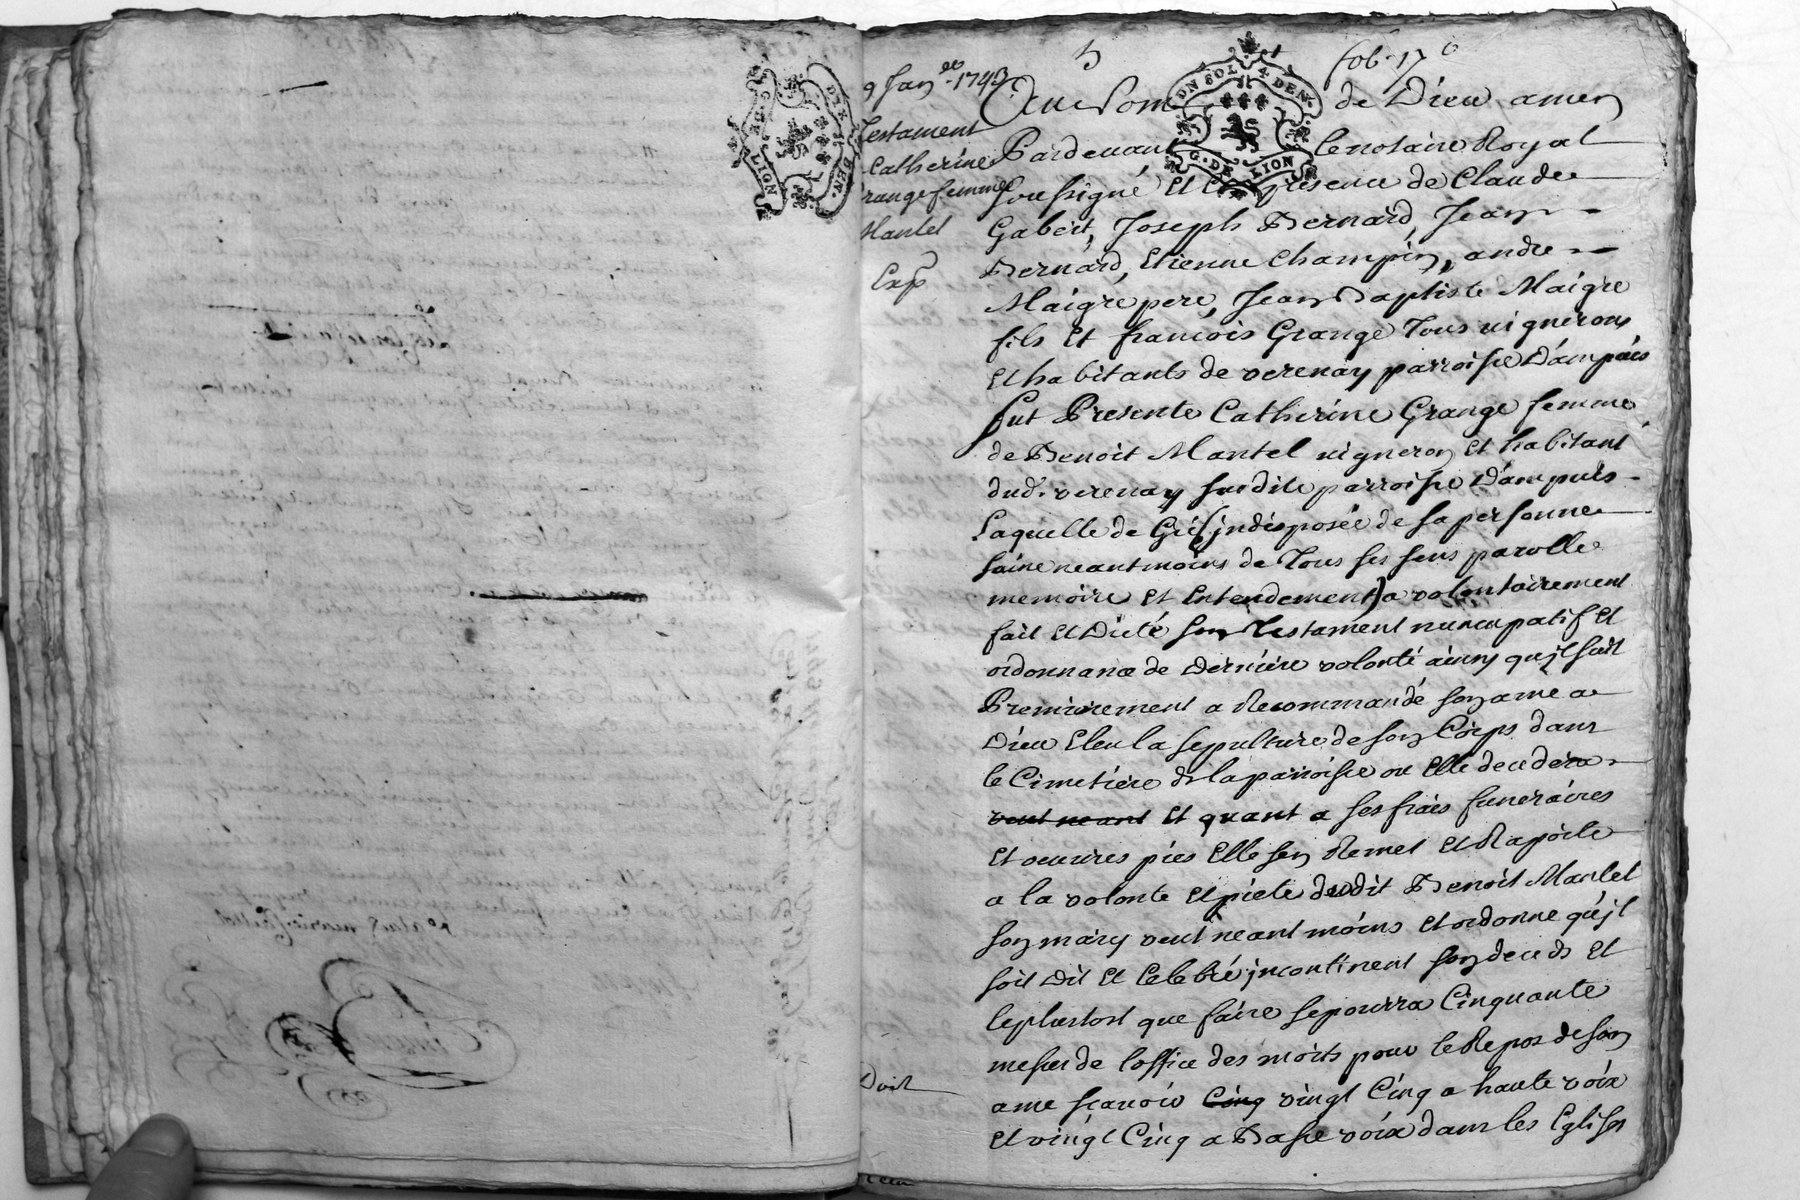 5
fol. 17
9 Janv.er 1743
Testament
Catherine
Grange femme
Mantel
Exp
DN SOL 4 DEN.
G. DE LION
Au Nom de Dieu amen
Pardevant le notaire Royal
soussigné Et En presence de Claude
Gabert, Joseph Bernard, Jean
Bernard, Etienne Champin, andre
Maigre pere, Jean Baptiste Maigre
fils Et francois Grange Tous vignerons
Et habitants de verenay parroisse D'ampuis
fut Presente Catherine Grange femme
de Benoit Mantel vigneron Et habitant
dud. verenay susdite parroisse D'ampuis
Laquelle de Gré (indisposée de sa personne
saine neantmoins de Tous ses sens parolle
memoire Et Entendement) a volontairement
fait Et Dicté son Testament nuncupatif Et
ordonnance de Derniere volonté ainsy qu'jl suit
Premierement a Recommandé son ame a
Dieu Eleu la sepulture de son Corps dans
le Cimetiere de la parroisse ou Elle decedera
veut neant Et quant a ses frais funeraires
Et oeuvres pies Elle s'en Remet Et Raporte
a la volonte Et piete dudit Benoit Mantel
son mary veut neantmoins Et ordonne qu'jl
soit Dit Et Celebré jncontinent son deceds Et
leplustost que faire se pourra Cinquante
messes de l'office des morts pour le Repos de son
ame sçavoir Cinq vingt Cinq a haute voix
Et vingt Cinq a Basse voix dans les Eglises
Doit